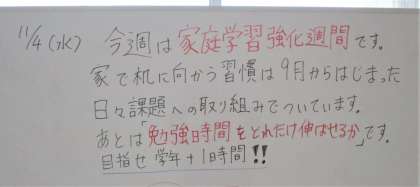 11/4(水) 今週は家庭学習強化週間です。
家で机に向かう習慣は9月からはじまった
日々課題への取り組みでついています。
あとは「勉強時間をどれだけ伸ばせるか」です。
目指せ 学年+1時間!!